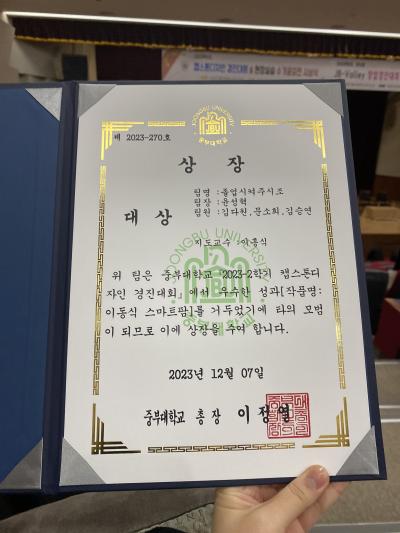 캡스톤디자인 경진대회 & 현장실습 수기공모전 시상식
JB-Valley 창업경진대회
JOONGBU UNIVERSITY
중부대학교
제 2023-270호
상 장
대 상
팀명 : 졸업시켜주시조
팀장 : 윤성혁
팀원 : 김다찬, 문소희, 김승연
지도교수 : 이홍식
위 팀은 중부대학교 「2023-2학기 캡스톤디
자인 경진대회」에서 우수한 성과[작품명:
이동식 스마트팜]를 거두었기에 타의 모범
이 되므로 이에 상장을 주여 합니다.
JOONGBU UNIVERSITY
중부대학교
2023년 12월 07일
중부대학교 총장 이정열